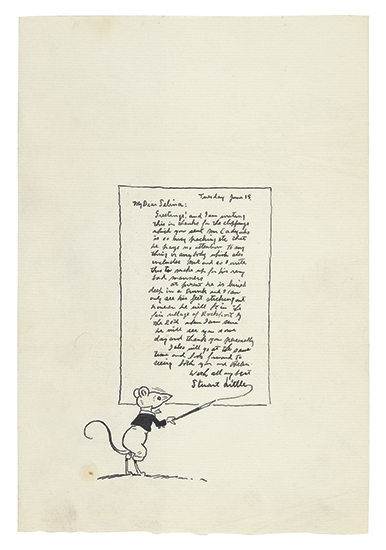 Tuesday June 15,
My Dear Selina:
Greetings! and I am writing
this in thanks for the clippings
which you sent Mr Cady who
is so busy packing etc that
he pays no attention to any
thing or anybody which also
includes me and so I write
this to make up for his very
bad manners
At present he is buried
deep in a trunk and I can
only see his feet sticking out
however he will be in the
fair village of Rockport by
the 20th when I am sure
he will see you some
day and thank you personally
I also will go at the same
time and look forward to
seeing both you and Helen
With all my best
Stuart Little